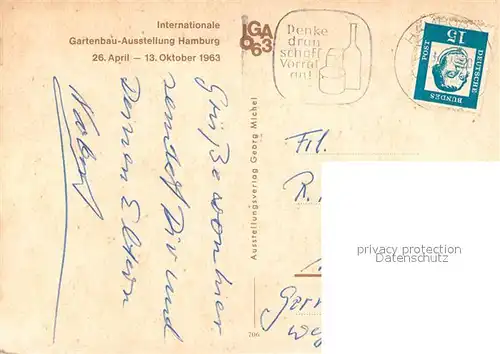 Internationale
Gartenbau-Ausstellung Hamburg
26. April — 13. Oktober 1963
IGA
63
Denke
dran
schaff
Vorrat
an!
15
POST
BUNDES
DEUTSCHE
Grüße von hier
sendet Dir und
Deinen Eltern
Ausstellungsverlag Georg Michel
706
Frl.
R.
privacy protection
Daten-Schutz